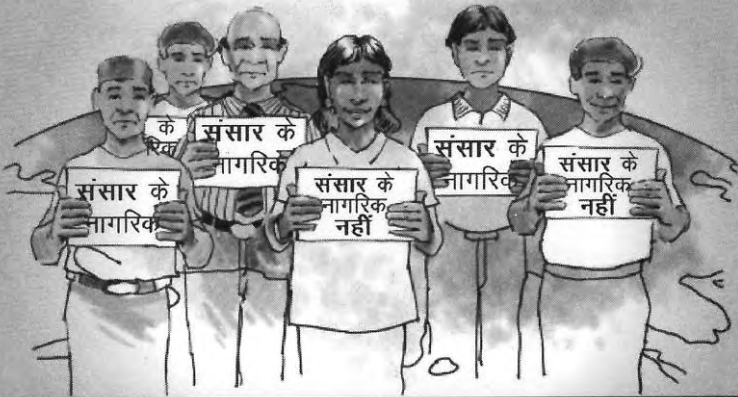 के
रिक
संसार के
नागरिक
संसार के
नागरिक
संसार के
नागरिक
संसार के
नागरिक
नहीं
संसार के
नागरिक
नहीं